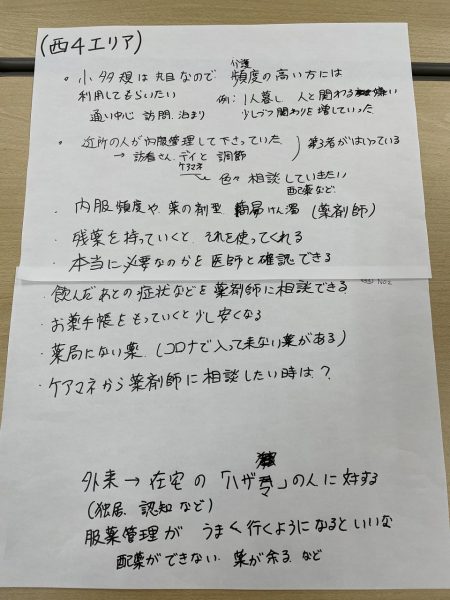 (西4エリア)
。小多規は丸目なので 介護 頻度の高い方には
利用してもらいたい 例：1人暮し 人と関わる 嫌い
通い中心 訪問 泊まり 少しづつ関わりを増していった
。近所の人が内服管理して下さっていた 第3者がはいっている
→ 訪看さん、デイと 調節
ケアマネ
色々 相談 していきたい
配薬など
・内服頻度や、薬の剤型 (薬剤師)
・残薬を持っていくと それを使ってくれる
・本当に必要なのかを医師と確認できる
・飲んだあとの症状などを薬剤師に相談できる
No2
・お薬手帳をもっていくと少し安くなる
・薬局にない薬 (コロナで入って来ない薬がある)
・ケアマネから薬剤師に相談したい時は？
外来 → 在宅 の 「ハザマ」の人に対する
(独居、認知 など)
服薬管理が うまく行くようになるといいな
配薬ができない 薬が余る など